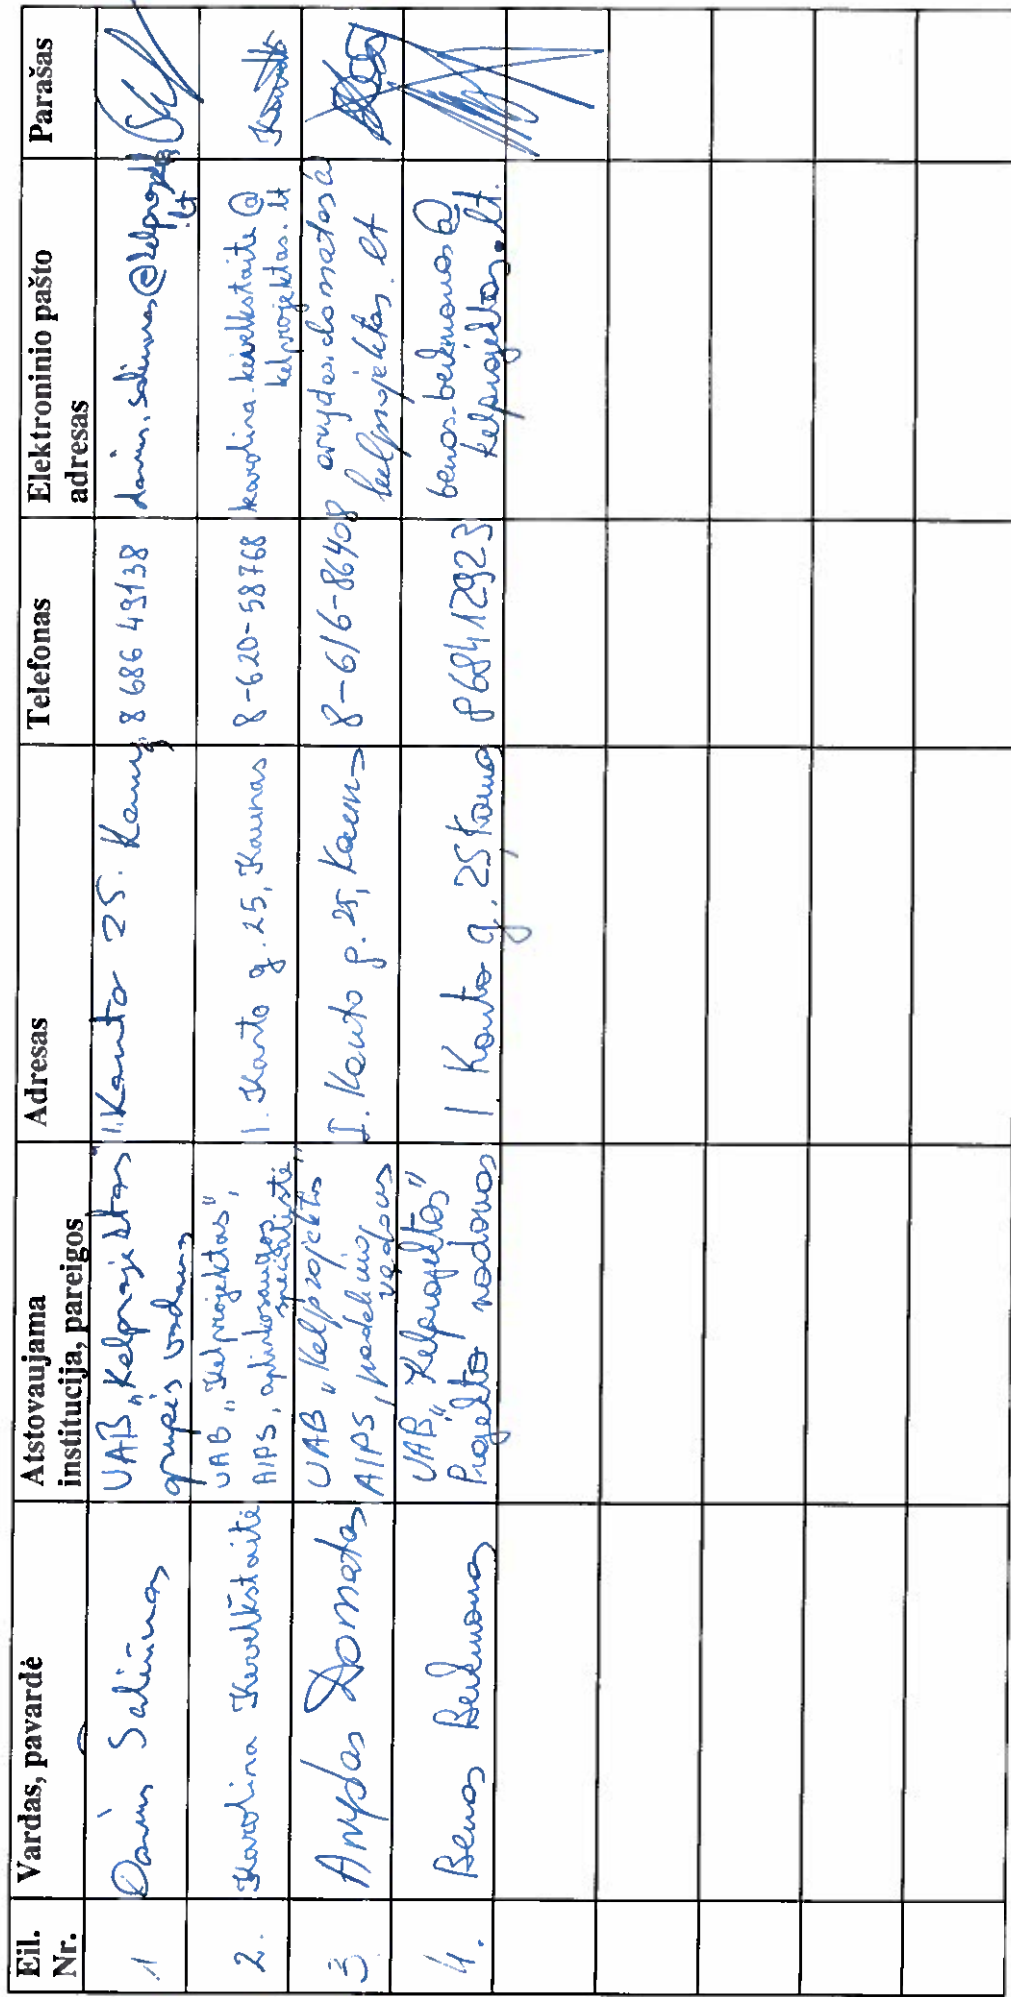 Eil. Nr.
Vardas, pavardė
Atstovaujama institucija, pareigos
Adresas
Telefonas
Elektroninio pašto adresas
Parašas
1
Darius Salinas
UAB „Kelprojektas"
grupės vadovas
I. Kanto 25. Kaunas
8 686 49138
2.
Karolina Kevelkštaitė
UAB „Kelprojektas",
AIPS, aplinkosaugos
specialistė
I. Kanto g. 25, Kaunas
8-620-58768
karolina.kevelkstaite@
kelprojektas.lt
3
Arvydas Domatas
UAB „Kelprojektas"
AIPS, padalinio
vadovas
I. Kanto g. 25, Kaunas
8-616-86408
arvydas.domatas@
kelprojektas.lt
4.
Benas
UAB „Kelprojektas"
Projekto vadovas
I Kanto g. 25 Kaunas
868412923
kelprojektas.lt.